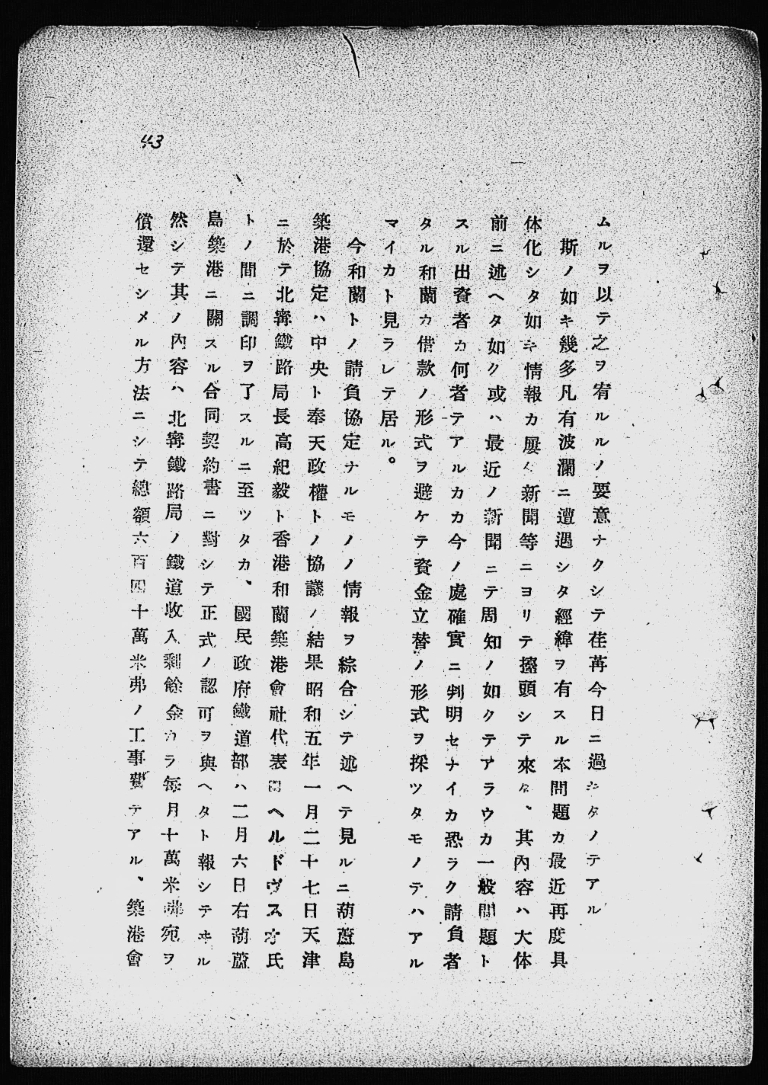 43
ムルヲ以テ之ヲ宥ルルノ要意ナクシテ荏苒今日ニ過シタノテアル
斯ノ如キ幾多凡有波瀾ニ遭遇シタ經緯ヲ有スル本問題カ最近再度具
体化シタ如キ情報カ屡々新聞等ニヨリテ擡頭シテ來タ、其內容ハ大体
前ニ述ヘタ如ク或ハ最近ノ新聞ニテ周知ノ如クテアラウカ一般問題ト
スル出資者カ何者テアルカカ今ノ處確實ニ判明セナイカ恐ラク請負者
タル和蘭カ借款ノ形式ヲ避ケテ資金立替ノ形式ヲ採ツタモノテハアル
マイカト見ラレテ居ル。
今和蘭トノ請負協定ナルモノノ情報ヲ綜合シテ述ヘテ見ルニ葫蘆島
築港協定ハ中央ト奉天政權トノ協議ノ結果昭和五年一月二十七日天津
ニ於テ北寧鐵路局長高紀毅ト香港和蘭築港會社代表ヘルドヴスオ氏
トノ間ニ調印ヲ了スルニ至ツタカ、國民政府鐵道部ハ二月六日右葫蘆
島築港ニ關スル合同契約書ニ對シテ正式ノ認可ヲ與ヘタト報シテヰル
然シテ其ノ內容ハ北寧鐵路局ノ鐵道收入剩餘金カラ每月十萬米弗宛ヲ
償還セシメル方法ニシテ總額六百四十萬米弗ノ工事費テアル、築港會